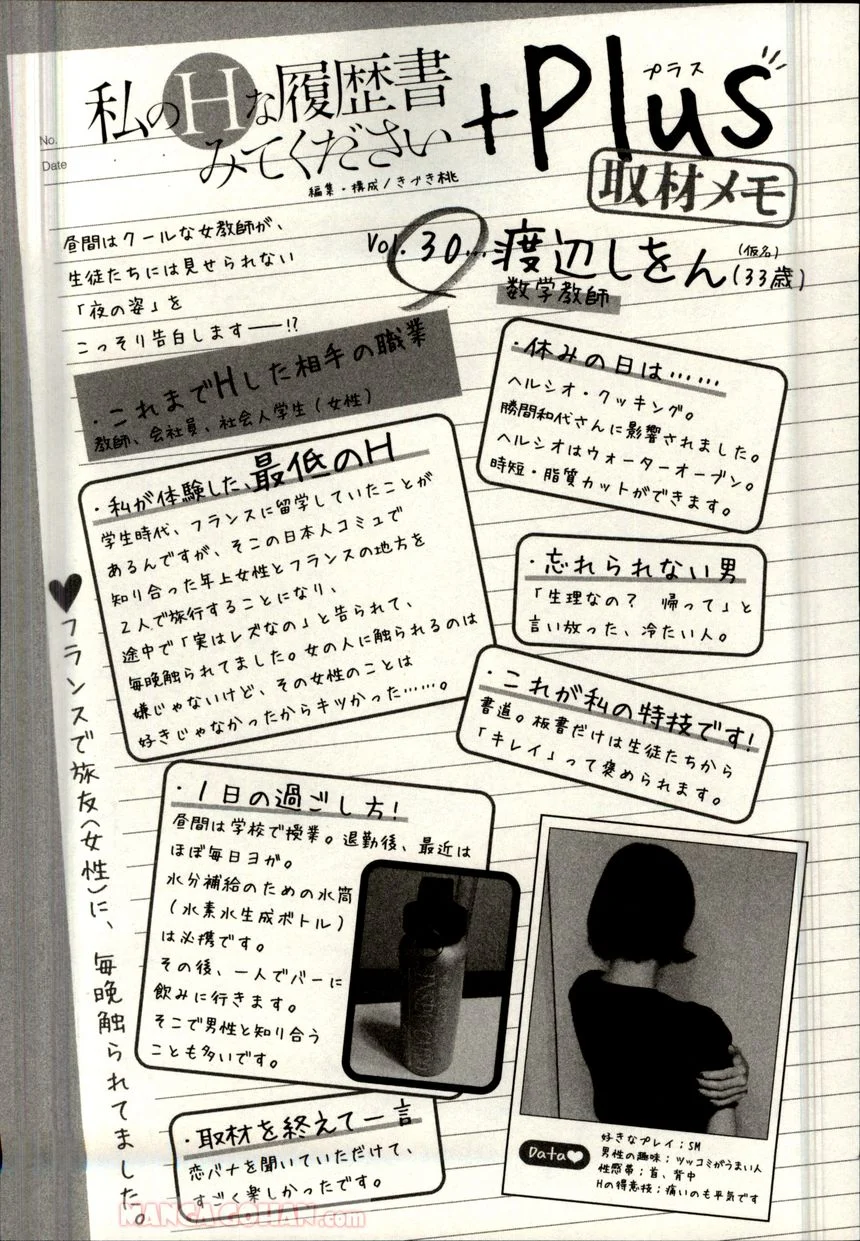 No.
Date
私のHな履歴書
みてください
+Plus
プラス
取材メモ
編集・構成/きづき桃
昼間はクールな女教師が、
生徒たちには見せられない
「夜の姿」を
こっそり告白します――!?
Vol.30…渡辺しをん(仮名)(33歳)
数学教師
・これまでHした相手の職業
教師、会社員、社会人学生(女性)
・休みの日は……
ヘルシオ・クッキング。
勝間和代さんに影響されました。
ヘルシオはウォーターオーブン。
時短・脂質カットができます。
・私が体験した、最低のH
学生時代、フランスに留学していたことが
あるんですが、そこの日本人コミュで
知り合った年上女性とフランスの地方を
2人で旅行することになり、
途中で「実はレズなの」と告られて、
毎晩触られてました。女の人に触られるのは
嫌じゃないけど、その女性のことは
好きじゃなかったからキツかった……。
・忘れられない男
「生理なの? 帰って」と
言い放った、冷たい人。
・これが私の特技です!
書道。板書だけは生徒たちから
「キレイ」って褒められます。
♥フランスで旅友(女性)に、毎晩触られてました。
・1日の過ごし方!
昼間は学校で授業。退勤後、最近は
ほぼ毎日ヨガ。
水分補給のための水筒
(水素水生成ボトル)
は必携です。
その後、一人でバーに
飲みに行きます。
そこで男性と知り合う
ことも多いです。
・取材を終えて一言
恋バナを聞いていただけて、
すごく楽しかったです。
Data♥
好きなプレイ;SM
男性の趣味;ツッコミがうまい人
性感帯;首、背中
Hの得意技;痛いのも平気です
MANGAGOHAN.com